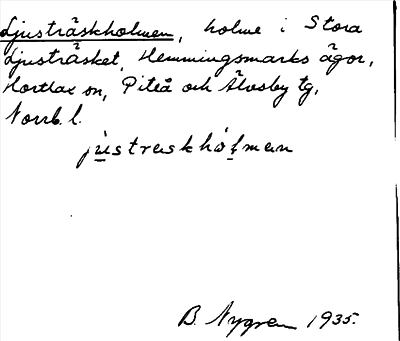 Ljusträskholmen, holme i Stora
Ljusträsket, Hemmingsmarks ägor,
Hortlax sn, Piteå och Älvsby tg,
Norrb. l.
ju̲straskhól̲man
B. Nygren 1935.